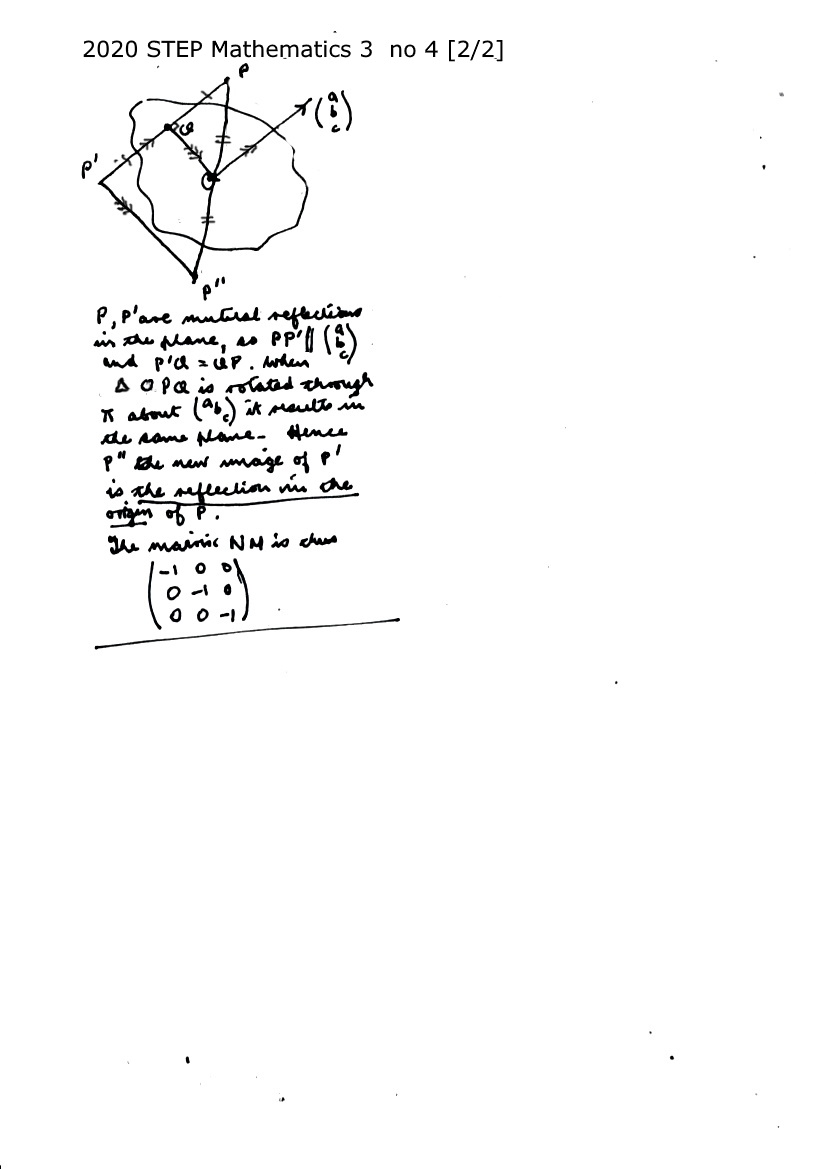 2020 STEP Mathematics 3 no 4 [2/2]
P
(a b c)
Q
P'
O
P"
P, P' are mutual reflections
in the plane, so PP' ∥ (a b c)
and P'Q = QP. When
Δ OPQ is rotated through
π about (a b c) it results in
the same plane. Hence
P" the new image of P'
is the reflection in the
origin of P.
The matrix NM is thus
(-1 0 0
0 -1 0
0 0 -1)